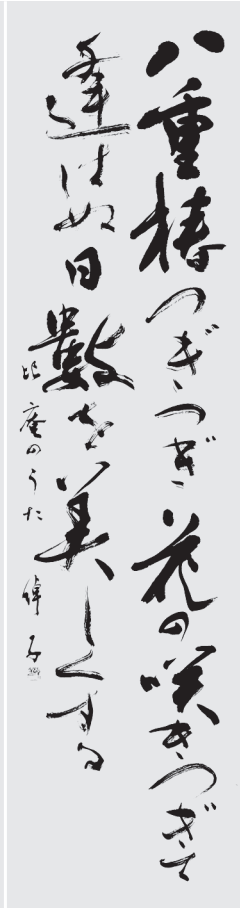 八重椿つぎつぎ花の咲きつぎて
逢はぬ日數を美しくする
比庵のうた